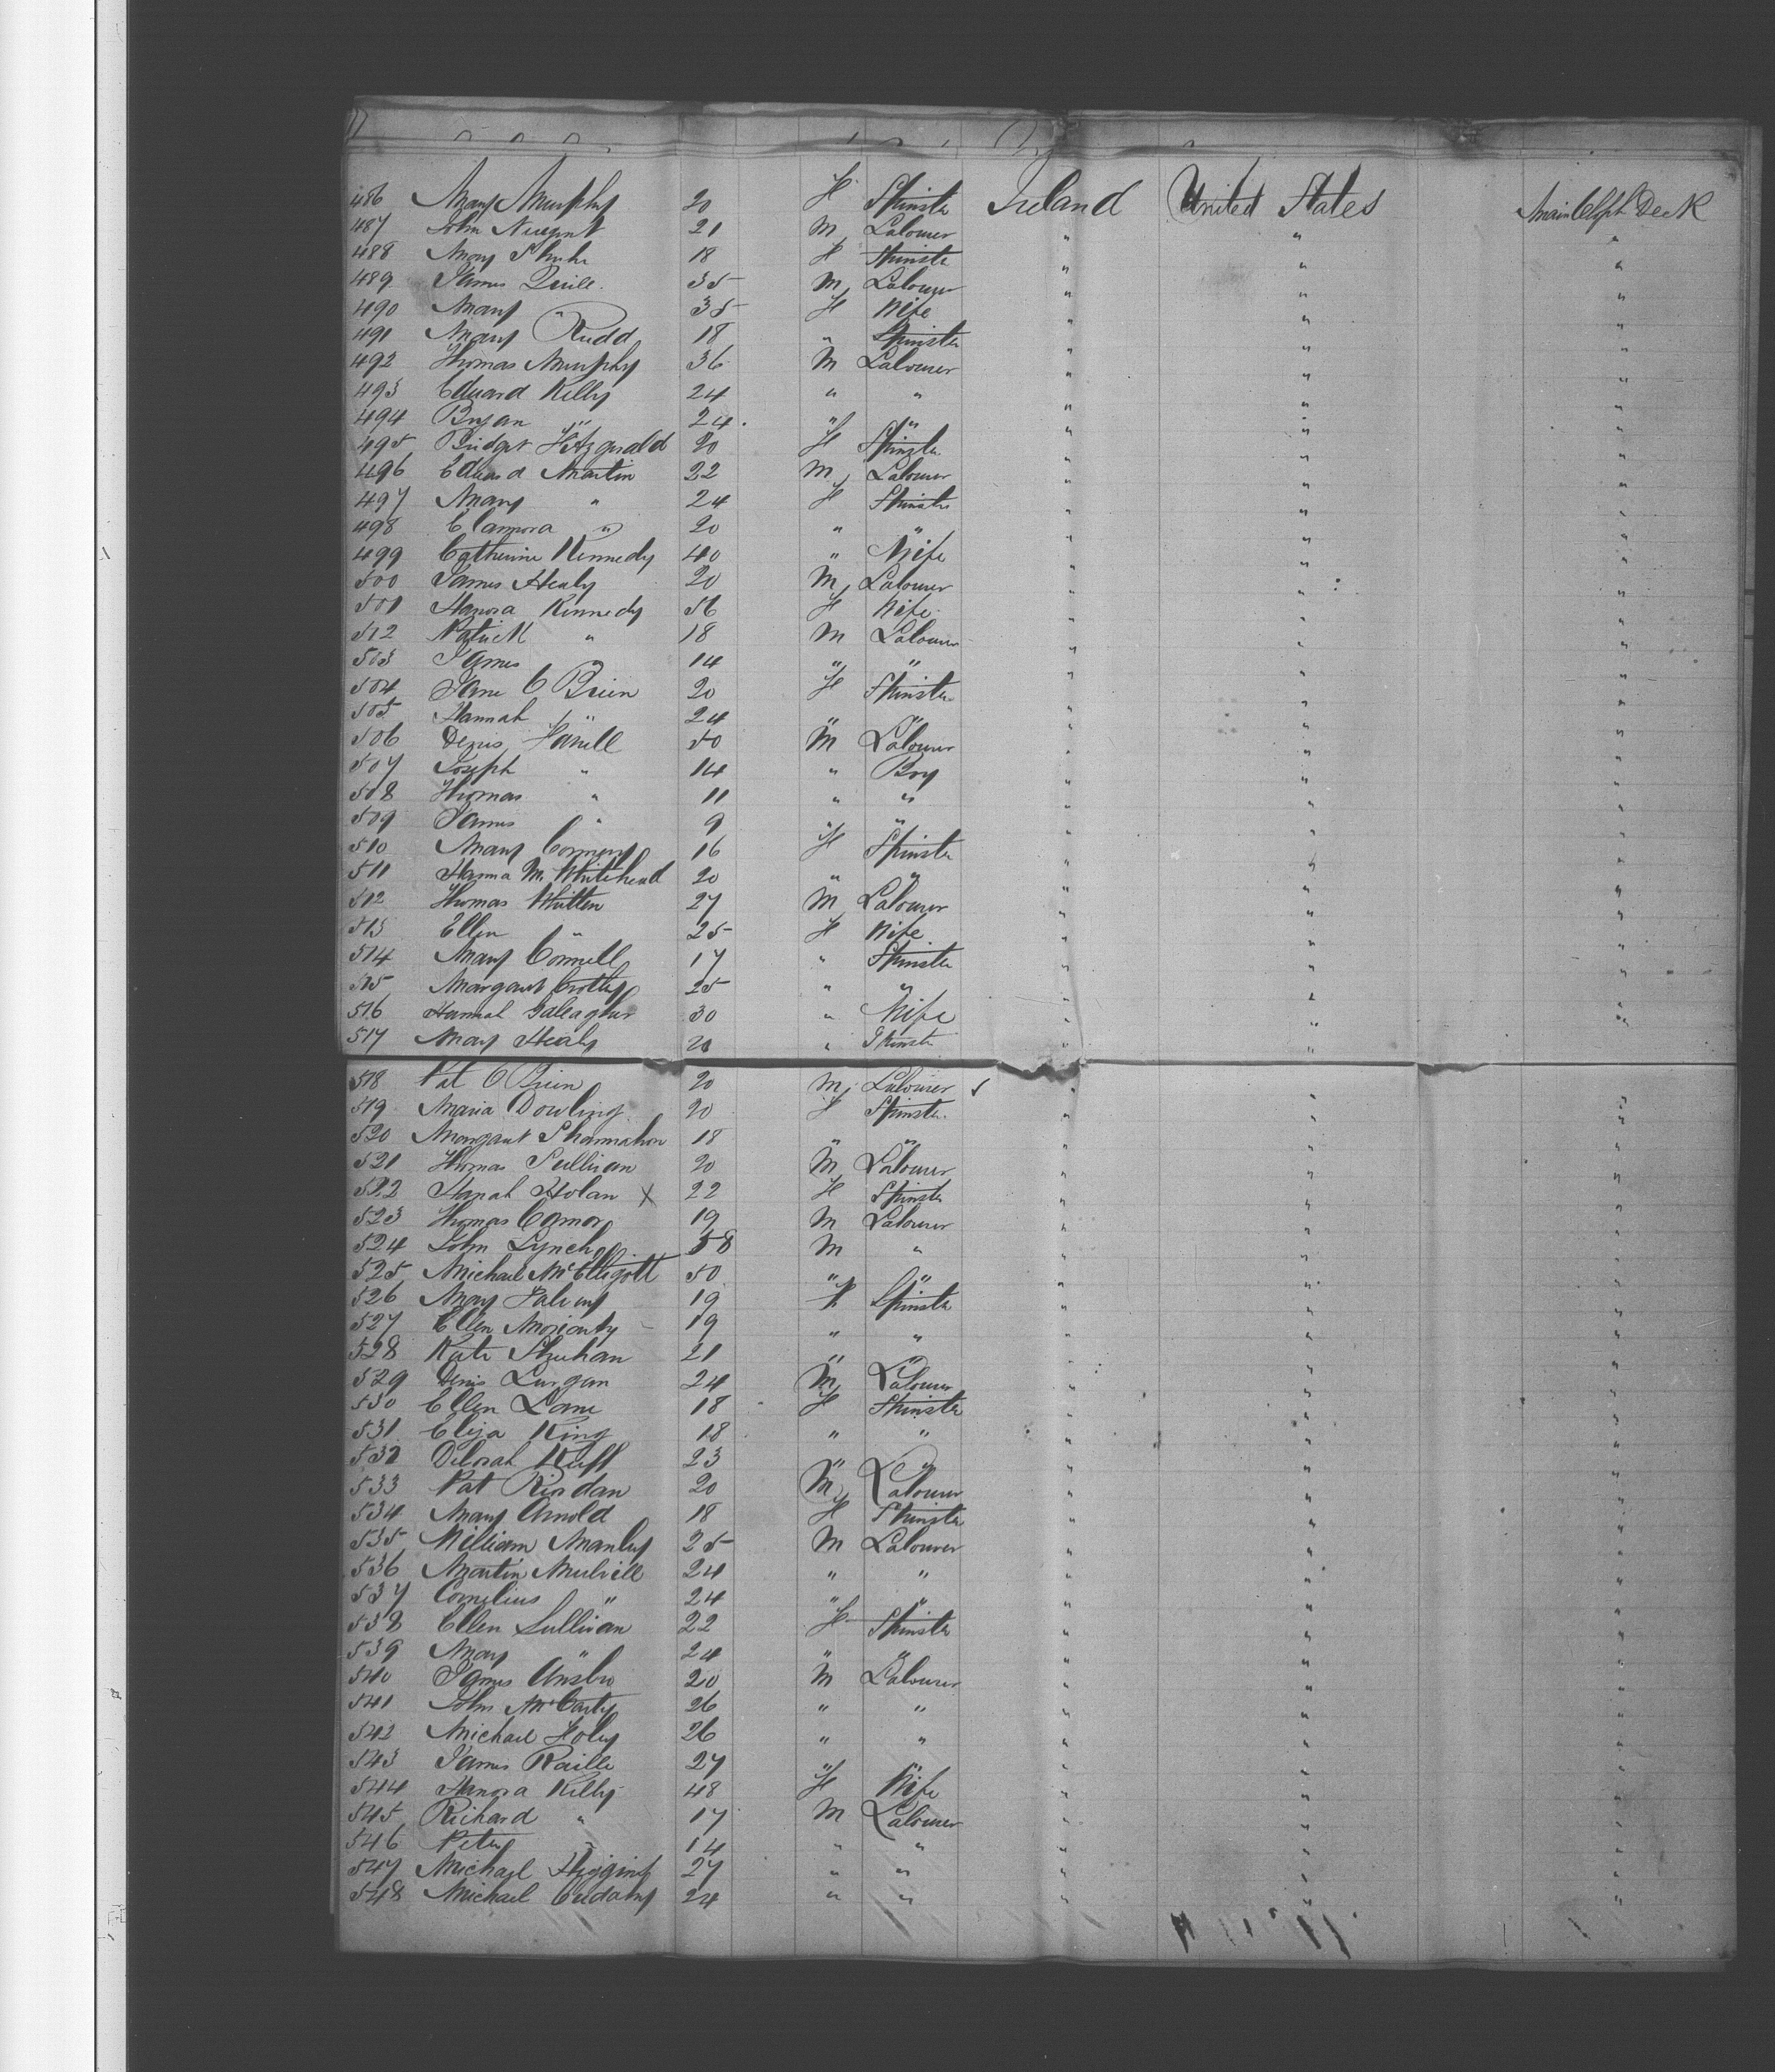 486 Mary Murphy 20 F Spinster Ireland United States Main Deck
487 John Nugent 21 M Labourer " " "
488 Mary 18 F Spinster " " "
489 James Quill 35 M Labourer " " "
490 Mary " 35 F Wife " " "
491 Mary Rudd 18 " Spinster " " "
492 Thomas Murphy 36 M Labourer " " "
493 Edward Kelly 24 " " " " "
494 Bryan " 24 " " " " "
495 Bridget Fitzgerald 20 F Spinster " " "
496 Edward Martin 22 M Labourer " " "
497 Mary " 24 F Spinster " " "
498 " 20 " " " " "
499 Catherine Kennedy 40 " Wife " " "
500 James Healy 20 M Labourer " " "
501 Hanora Kennedy 56 F Wife " " "
512 Patrick " 18 M Labourer " " "
503 James 14 " " " " "
504 Jane O Brien 20 F Spinster " " "
505 Hannah " 24 " " " " "
506 Denis 50 M Labourer " " "
507 Joseph " 14 " Boy " " "
508 Thomas " 11 " " " " "
509 James " 9 " " " " "
510 Mary 16 F Spinster " " "
511 Hanna M. Whitehead 20 " " " " "
512 Thomas Whitten 27 M Labourer " " "
513 Ellen " 25 F Wife " " "
514 Mary Connell 17 " Spinster " " "
515 Margaret Crotty 25 " " " " "
516 Hannah Galeagher 30 " Wife " " "
517 Mary Healy 20 " Spinster " " "
518 Pat O Brien 20 M Labourer " " "
519 Maria Dowling 20 F Spinster " " "
520 Margaret Shannahan 18 " " " " "
521 Thomas Sullivan 20 M Labourer " " "
522 Hanah Holan X 22 F Spinster " " "
523 Thomas Connor 19 M Labourer " " "
524 John Lynch 58 M " " " "
525 Michael McElligott 50 " " " " "
526 Mary Falvey 19 F Spinster " " "
527 Ellen Moriarty 19 " " " " "
528 Kate Sheehan 21 " " " " "
529 Denis 24 M Labourer " " "
530 Ellen Lane 18 F Spinster " " "
531 Eliza King 18 " " " " "
532 Deborah Keeff 23 " " " " "
533 Pat Riordan 20 M Labourer " " "
534 Mary Arnold 18 F Spinster " " "
535 William Manley 25 M Labourer " " "
536 Martin Mulvill 24 " " " " "
537 Cornelius " 24 " " " " "
538 Ellen Sullivan 22 F Spinster " " "
539 Mary " 24 " " " " "
540 James Ansbro 20 M Labourer " " "
541 John McCarty 26 " " " " "
542 Michael Foley 26 " " " " "
543 James 27 " " " " "
544 Hanora Kelly 48 F Wife " " "
545 Richard " 17 M Labourer " " "
546 Peter " 14 " " " " "
547 Michael Higgins 27 " " " " "
548 Michael Cudahy 24 " " " " "